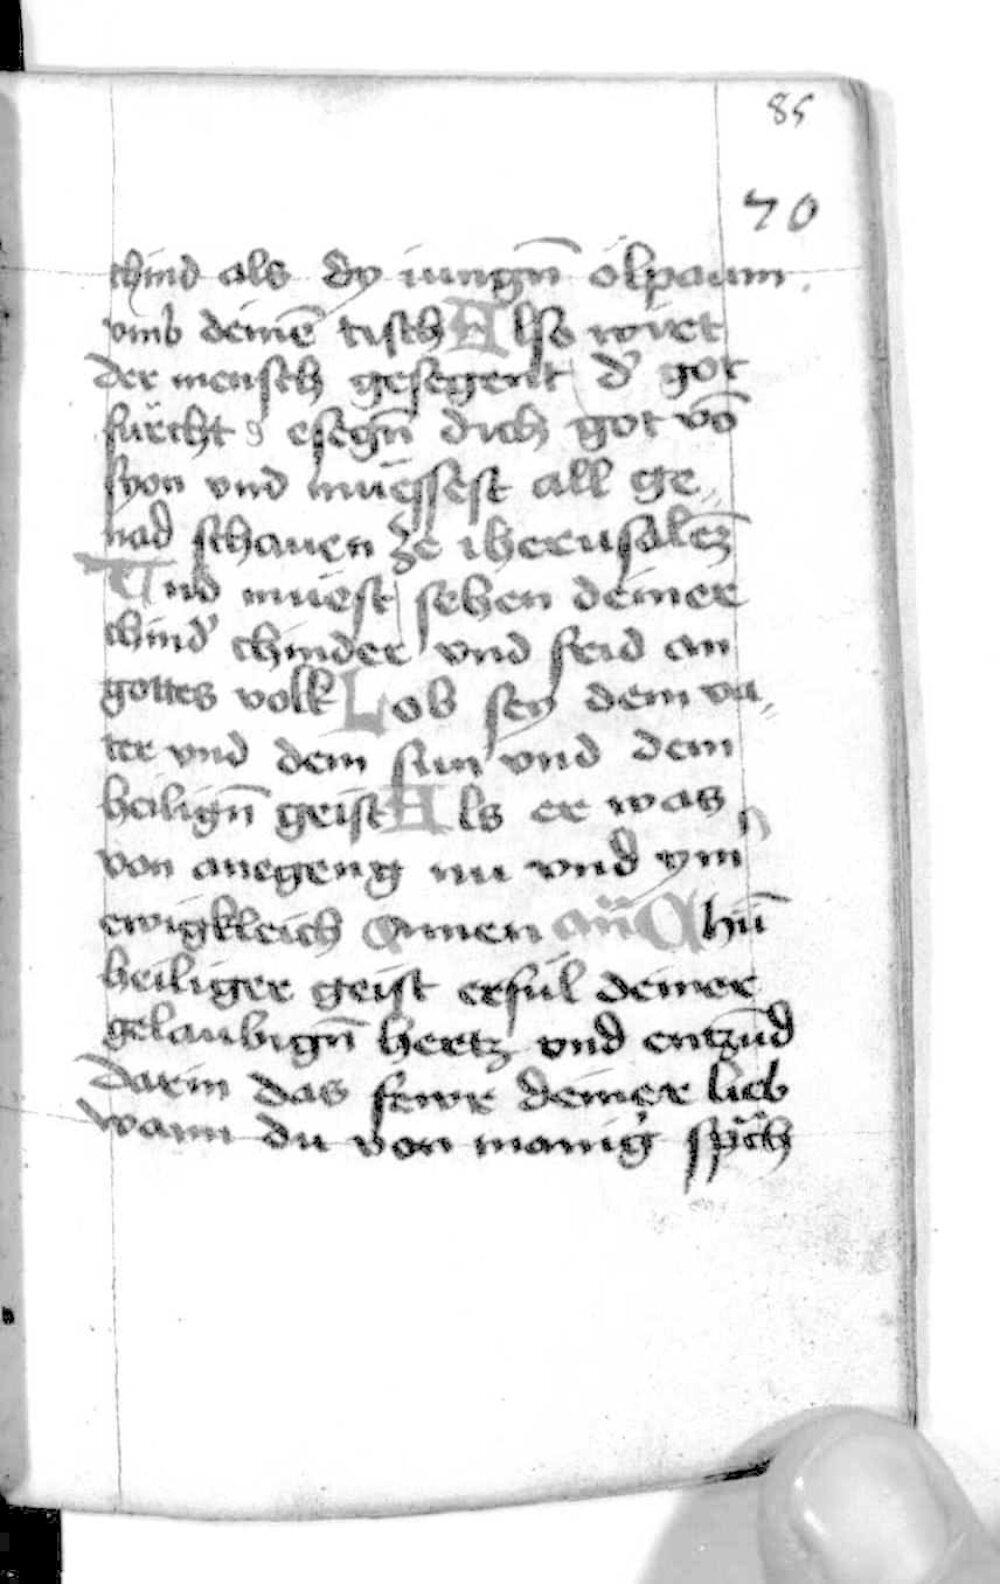 85
70
chind als dy iungn̄ ölpaum
vmb deinē tisch Also wirt
der mensch gesegent d' got
fürcht gesegn̄ dich got vō
syon vnd müessest all ge„
nad schauen ze iherusalē
Vnd müest sehen deiner
chind' chinder vnd frid an
gottes volk Lob sey dem va„
ter vnd dem sun vnd dem
heilign̄ geist Als er was
von anegeng nu vnd ym̄
ewigkleich Amen an̄ Chū
heiliger geist erfül deiner
gelaubign̄ hertz vnd entzünd
darin das fewr deiner lieb
wann du von manig' sprāch